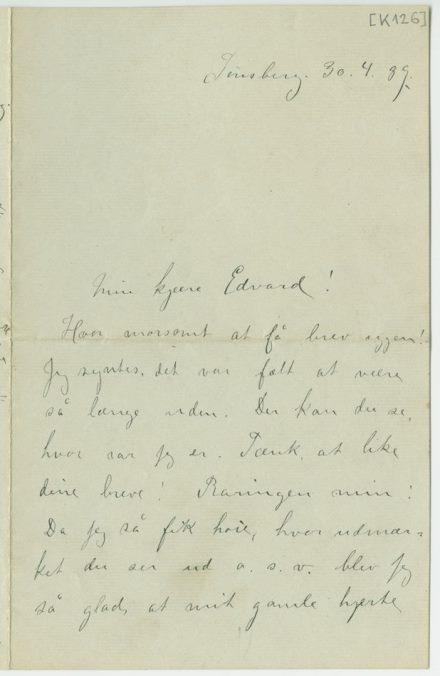 [K126]
Tönsberg. 30. 4. 89.
Min kjære Edvard!
Hvor morsomt at få brev iggen!
Jeg syntes, det var fælt at være
så længe uden. Der kan du se,
hvor rar jeg er. Tænk, at like
dine breve! Raringen min!
Da jeg så fik høre, hvor udmær-
ket du ser ud o. s. v. blev jeg
så glad, at mit gamle hjerte